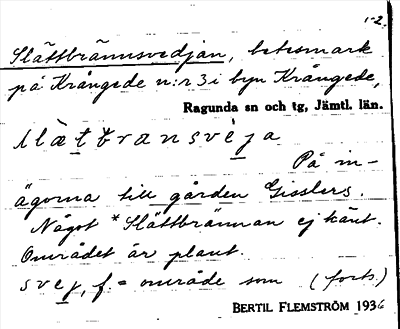 1-2.
Slättbrännsvedjan, betesmark
på Krångede n:r 3 i byn Krångede,
Ragunda sn och tg, Jämtl. län.
På in-
ägorna till gården Gisslers.
Något *Slättbrännan ej känt.
Området är plant.
svej, f. = område som (forts)
BERTIL FLEMSTRÖM 1936